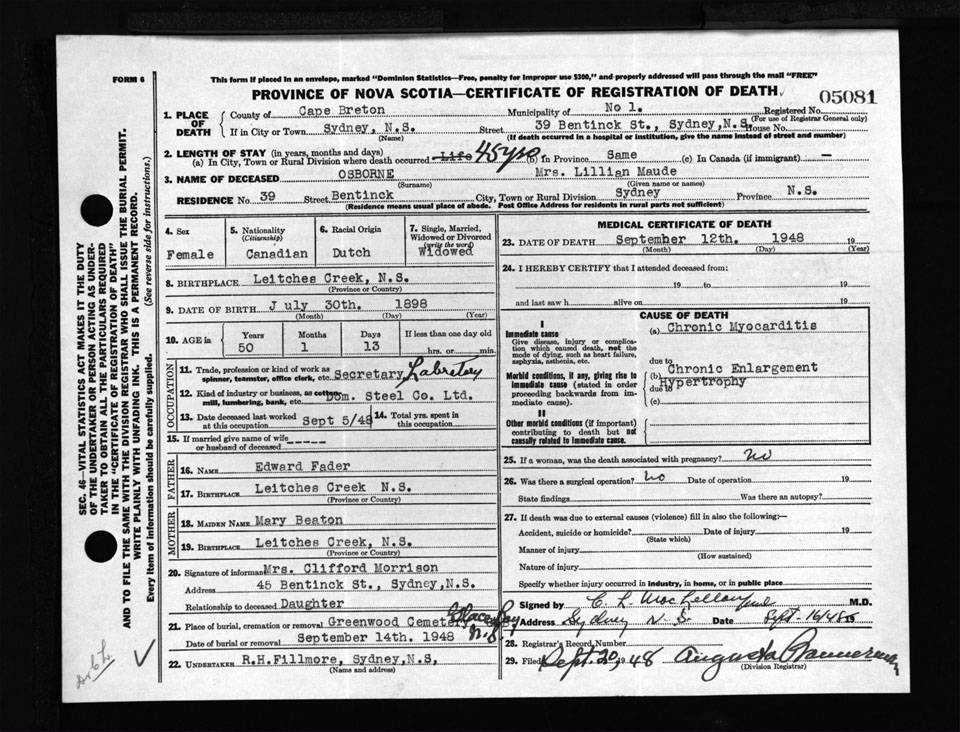 FORM 6
This form if placed in an envelope, marked "Dominion Statistics—Free, penalty for improper use $300," and properly addressed will pass through the mail "FREE"
PROVINCE OF NOVA SCOTIA—CERTIFICATE OF REGISTRATION OF DEATH
05081
1. PLACE OF DEATH
County of Cape Breton Municipality of No 1. Registered No.
(For use of Registrar General only)
If in City or Town Sydney, N.S. Street 39 Bentinck St., Sydney,N.S. House No.
(Name) (If death occurred in a hospital or institution, give the name instead of street and number)
2. LENGTH OF STAY (in years, months and days)
(a) In City, Town or Rural Division where death occurred Life 45 yrs (b) In Province Same (c) In Canada (if immigrant) —
3. NAME OF DECEASED OSBORNE Mrs. Lillian Maude
(Surname) (Given name or names)
RESIDENCE No. 39 Street Bentinck City, Town or Rural Division Sydney Province N.S.
(Residence means usual place of abode. Post Office Address for residents in rural parts not sufficient)
4. Sex Female
5. Nationality (Citizenship) Canadian
6. Racial Origin Dutch
7. Single, Married, Widowed or Divorced (write the word) Widowed
8. BIRTHPLACE Leitches Creek, N.S.
(Province or Country)
9. DATE OF BIRTH J uly 30th. 1898
(Month) (Day) (Year)
10. AGE in Years 50 Months 1 Days 13 If less than one day old hrs. or min.
OCCUPATION
11. Trade, profession or kind of work as spinner, teamster, office clerk, etc. Secretary,
12. Kind of industry or business, as cotton mill, lumbering, bank, etc. Dom. Steel Co. Ltd.
13. Date deceased last worked at this occupation Sept 5/48 14. Total yrs. spent in this occupation
15. If married give name of wife or husband of deceased -----
FATHER
16. NAME Edward Fader
17. BIRTHPLACE Leitches Creek N.S.
(Province or Country)
MOTHER
18. MAIDEN NAME Mary Beaton
19. BIRTHPLACE Leitches Creek, N.S.
(Province or Country)
20. Signature of informant Mrs. Clifford Morrison
Address 45 Bentinck St., Sydney,N.S.
Relationship to deceased Daughter
21. Place of burial, cremation or removal Greenwood Cemetery Glace Bay N.S.
Date of burial or removal September 14th. 1948
22. UNDERTAKER R.H.Fillmore, Sydney,N.S,
MEDICAL CERTIFICATE OF DEATH
23. DATE OF DEATH September 12th. 1948 19
(Month) (Day) (Year)
24. I HEREBY CERTIFY that I attended deceased from:
19 to 19
and last saw h alive on 19
CAUSE OF DEATH
I
Immediate cause (a) Chronic Myocarditis
Give disease, injury or complication which caused death, not the mode of dying, such as heart failure, asphyxia, asthenia, etc.
due to
Morbid conditions, if any, giving rise to immediate cause (stated in order proceeding backwards from immediate cause).
(b) Chronic Enlargement
Hypertrophy
due to
(c)
II
Other morbid conditions (if important) contributing to death but not causally related to immediate cause.
25. If a woman, was the death associated with pregnancy? no
26. Was there a surgical operation? no Date of operation 19
State findings Was there an autopsy?
27. If death was due to external causes (violence) fill in also the following:—
Accident, suicide or homicide? Date of injury 19
(State which)
Manner of injury
(How sustained)
Nature of injury
Specify whether injury occurred in industry, in home, or in public place
Signed by C L MacLellan M.D.
Address Sydney N S. Date Sept 16/48 19
28. Registrar's Record Number
29. Filed Sept. 20 1948 Augusta
(Division Registrar)
SEC. 46—VITAL STATISTICS ACT MAKES IT THE DUTY
OF THE UNDERTAKER OR PERSON ACTING AS UNDER-
TAKER TO OBTAIN ALL THE PARTICULARS REQUIRED
IN THE "CERTIFICATE OF REGISTRATION OF DEATH"
AND TO FILE THE SAME WITH THE DIVISION REGISTRAR WHO SHALL ISSUE THE BURIAL PERMIT.
WRITE PLAINLY WITH UNFADING INK. THIS IS A PERMANENT RECORD.
Every item of information should be carefully supplied. (See reverse side for instructions.)